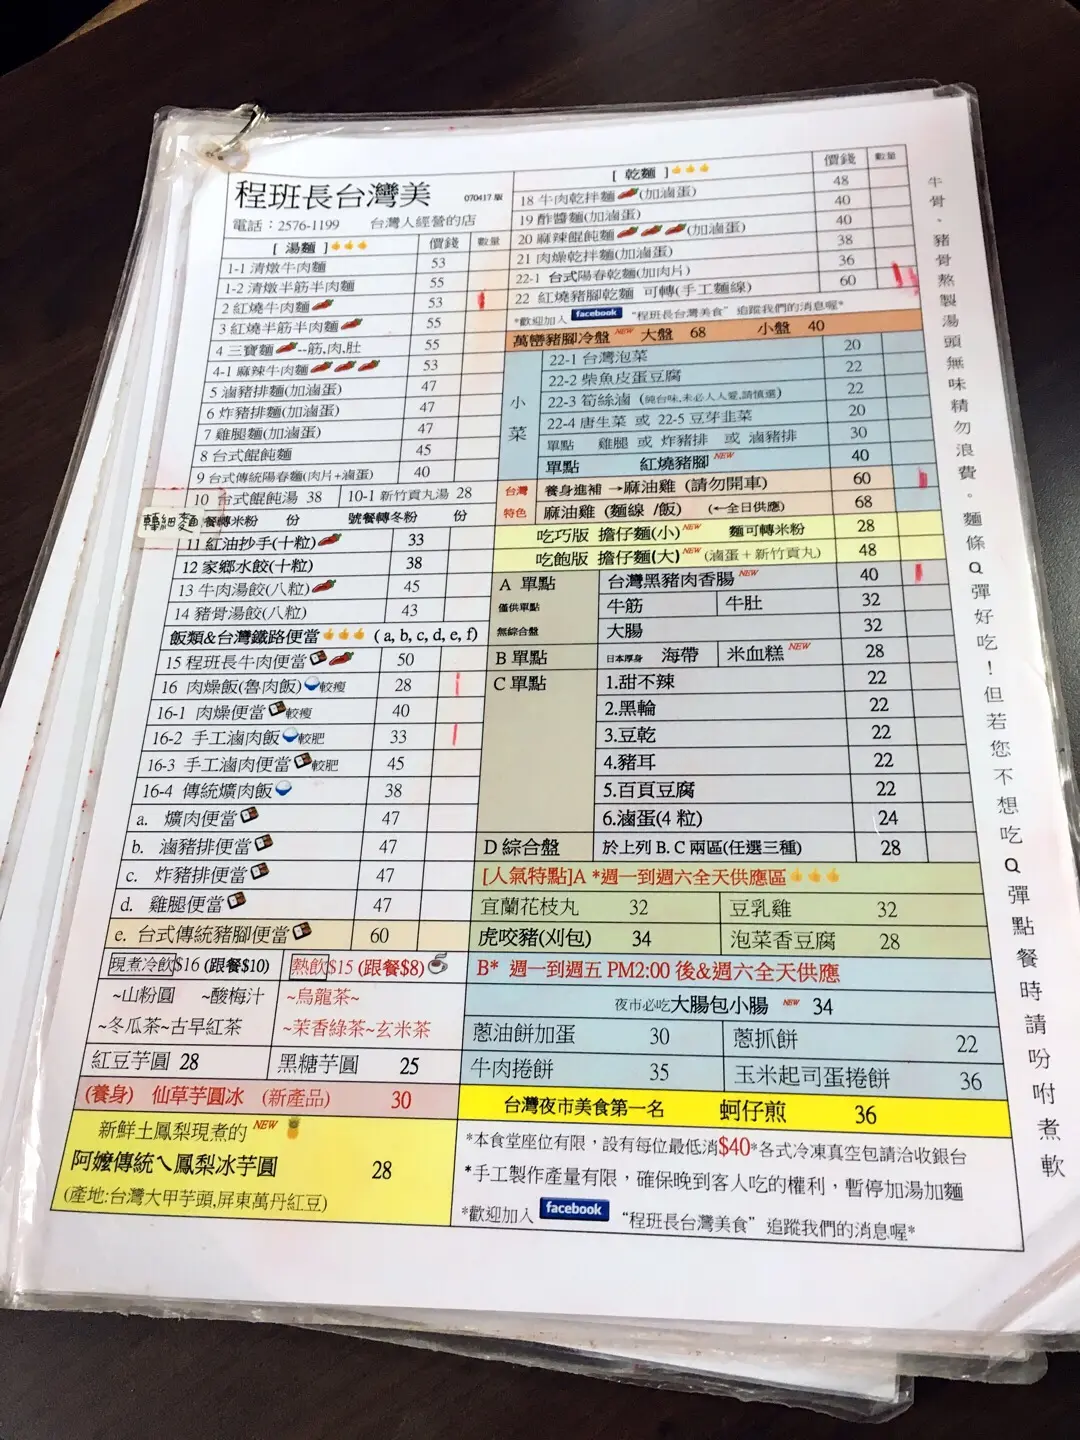 程班長台灣美 070417 版
電話：2576-1199 台灣人經營的店
[ 湯麵 ] 價錢 數量
1-1 清燉牛肉麵 53
1-2 清燉半筋半肉麵 55
2 紅燒牛肉麵 53
3 紅燒半筋半肉麵 55
4 三寶麵--筋.肉.肚 55
4-1 麻辣牛肉麵 53
5 滷豬排麵(加滷蛋) 47
6 炸豬排麵(加滷蛋) 47
7 雞腿麵(加滷蛋) 47
8 台式餛飩麵 45
9 台式傳統陽春麵(肉片+滷蛋) 40
10 台式餛飩湯 38 10-1 新竹貢丸湯 28
轉細麵 餐轉米粉 份 號餐轉冬粉 份
11 紅油抄手(十粒) 33
12 家鄉水餃(十粒) 38
13 牛肉湯餃(八粒) 45
14 豬骨湯餃(八粒) 43
飯類&台灣鐵路便當 ( a, b, c, d, e, f)
15 程班長牛肉便當 50
16 肉燥飯(魯肉飯) 較瘦 28
16-1 肉燥便當 較瘦 40
16-2 手工滷肉飯 較肥 33
16-3 手工滷肉便當 較肥 45
16-4 傳統爌肉飯 38
a. 爌肉便當 47
b. 滷豬排便當 47
c. 炸豬排便當 47
d. 雞腿便當 47
e. 台式傳統豬腳便當 60
現煮冷飲$16 (跟餐$10) 熱飲$15 (跟餐$8)
~山粉圓 ~酸梅汁 ~烏龍茶~
~冬瓜茶~古早紅茶 ~茉香綠茶~玄米茶
紅豆芋圓 28 黑糖芋圓 25
(養身) 仙草芋圓冰 (新產品) 30
新鮮土鳳梨現煮的 NEW
阿嬤傳統ㄟ鳳梨冰芋圓 28
(產地:台灣大甲芋頭,屏東萬丹紅豆)
[ 乾麵 ] 價錢 數量
18 牛肉乾拌麵(加滷蛋) 48
19 酢醬麵(加滷蛋) 40
20 麻辣餛飩麵(加滷蛋) 40
21 肉燥乾拌麵(加滷蛋) 38
22-1 台式陽春乾麵(加肉片) 36
22 紅燒豬腳乾麵 可轉(手工麵線) 60
*歡迎加入 facebook "程班長台灣美食" 追蹤我們的消息喔*
萬巒豬腳冷盤 NEW 大盤 68 小盤 40
小菜
22-1 台灣泡菜 20
22-2 柴魚皮蛋豆腐 22
22-3 筍絲滷 (純台味,未必人人愛,請慎選) 22
22-4 唐生菜 或 22-5 豆芽韭菜 20
單點 雞腿 或 炸豬排 或 滷豬排 30
單點 紅燒豬腳 NEW 40
台灣特色
養身進補 →麻油雞 (請勿開車) 60
麻油雞 (麵線 /飯) (←全日供應) 68
吃巧版 擔仔麵(小) NEW 麵可轉米粉 28
吃飽版 擔仔麵(大) NEW (滷蛋＋新竹貢丸) 48
A 單點 台灣黑豬肉香腸 NEW 40
僅供單點 牛筋 牛肚 32
無綜合盤 大腸 32
B 單點 日本厚身 海帶 米血糕 NEW 28
C 單點 1.甜不辣 22
2.黑輪 22
3.豆乾 22
4.豬耳 22
5.百頁豆腐 22
6.滷蛋(4 粒) 24
D 綜合盤 於上列 B. C 兩區(任選三種) 28
[人氣特點]A *週一到週六全天供應區
宜蘭花枝丸 32 豆乳雞 32
虎咬豬(刈包) 34 泡菜香豆腐 28
B* 週一到週五 PM2:00 後&週六全天供應
夜市必吃大腸包小腸 NEW 34
蔥油餅加蛋 30 蔥抓餅 22
牛肉捲餅 35 玉米起司蛋捲餅 36
台灣夜市美食第一名 蚵仔煎 36
*本食堂座位有限，設有每位最低消$40*各式冷凍真空包請洽收銀台
*手工製作產量有限，確保晚到客人吃的權利，暫停加湯加麵
*歡迎加入 facebook "程班長台灣美食" 追蹤我們的消息喔*
牛骨、豬骨熬製湯頭無味精勿浪費。麵條Q彈好吃！但若您不想吃Q彈點餐時請吩咐煮軟